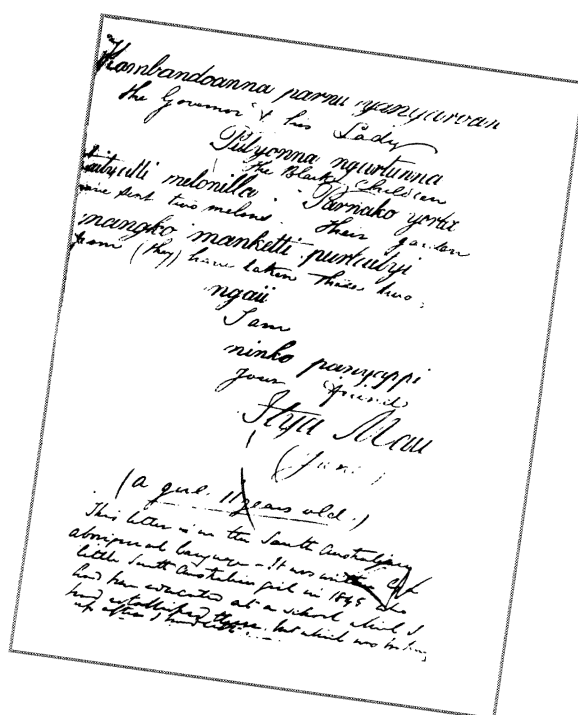 Kambandoanna parnu yangarroan
The Governor & his Lady
Pulyonna ngurtunna
The Black Children
melonilla. Parnako yerta
sent two melons. Their garden
mangko manketti purlaityi
from (they) have taken these two.
ngaii
I am
ninko panyappi
Your friend
Itya Mau
(Jane)
(a girl. 11 years old.)
This letter is in the South Australian
aboriginal language - It was written by a
little South Australian girl in 1845 who
had been educated at a school which I
had established there, but which was broken
up after I had left.